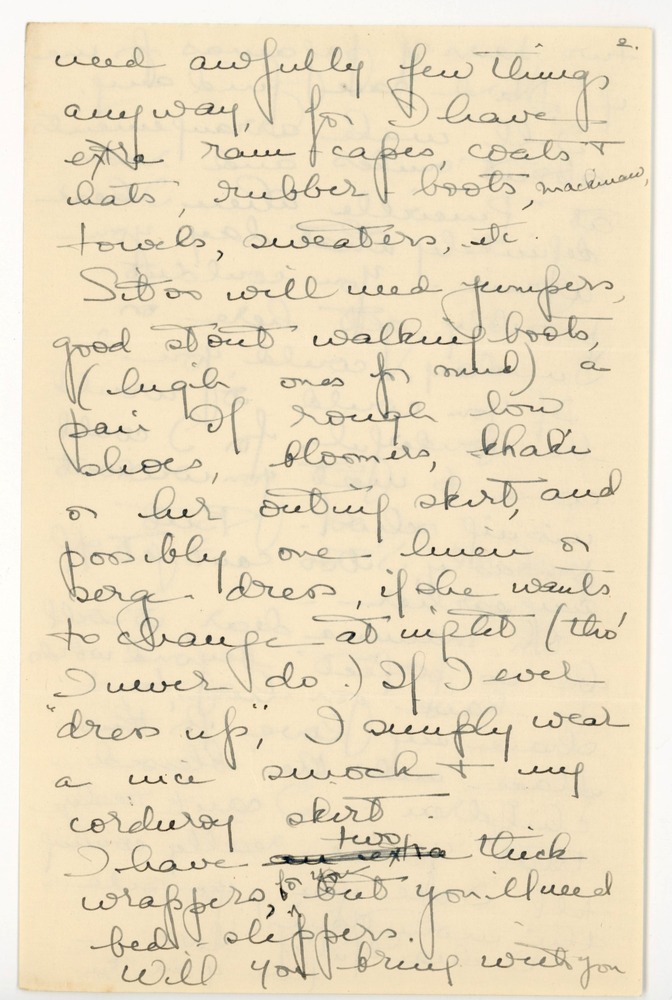 2.
need awfully few things
anyway, for I have
extra rain capes, coats +
hats, rubber boots, mackinaw,
towels, sweaters, etc.
Sitoo will need jumpers,
good stout walking boots,
(high ones for mud) a
pair of rough low
shoes, bloomers, khaki
or her outing skirt, and
possibly one linen or
serge dress, if she wants
to change at night (tho'
I never do.) If I ever
"dress up", I simply wear
a nice smock + my
corduroy skirt.
I have an extra two thick
wrappers, for you but you'll need
bed-slippers.
Will you bring with you